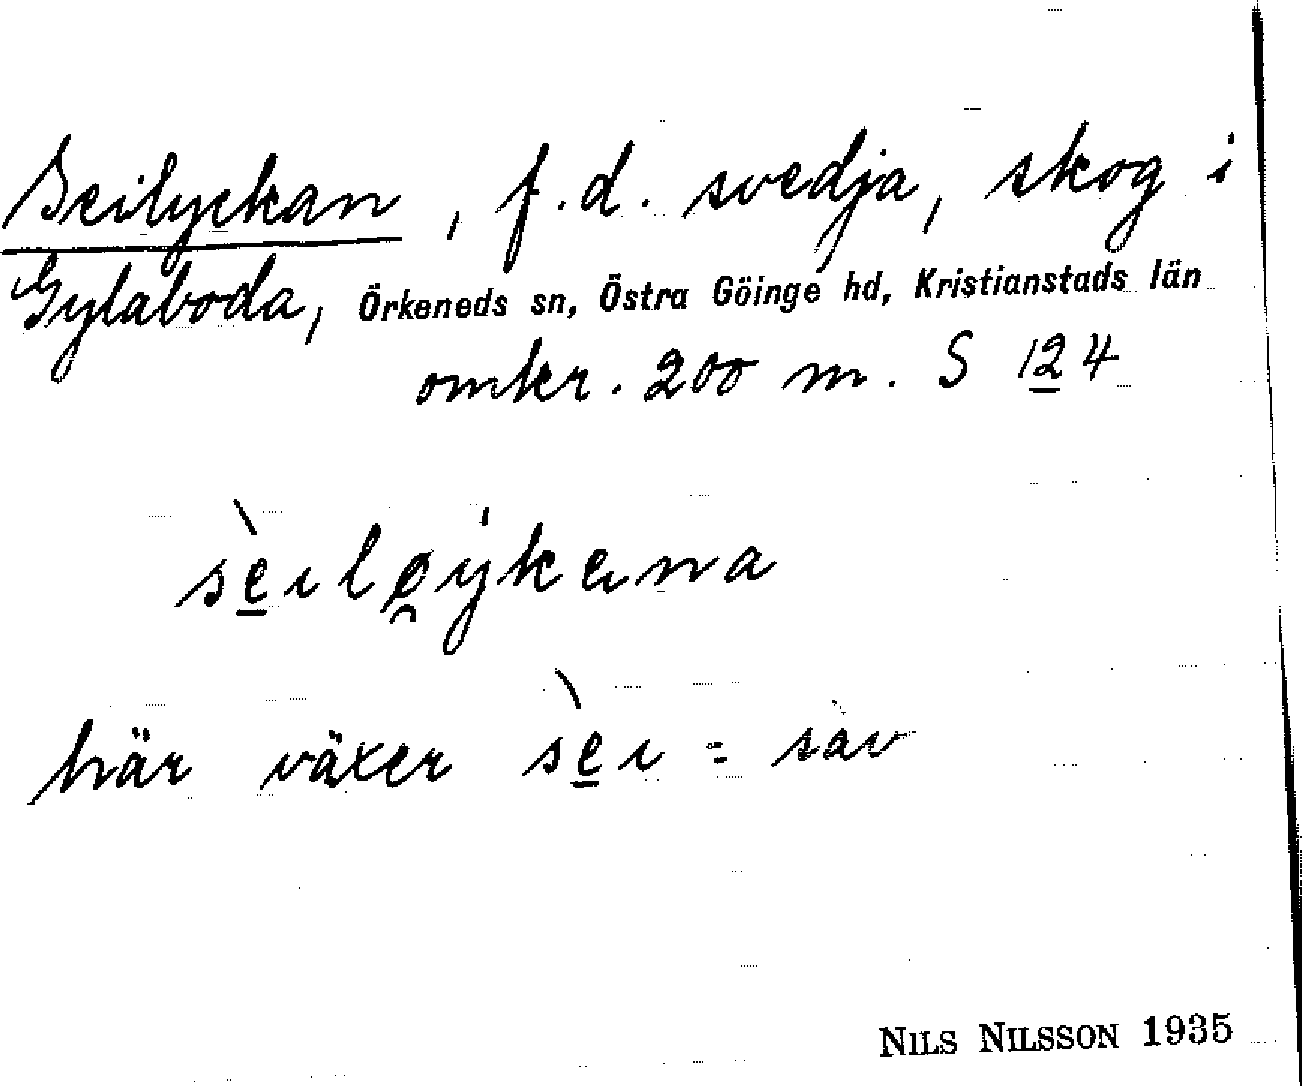 Seilyckan, f.d. svedja, skog i
Gylaboda, Örkeneds sn, Östra Göinge hd, Kristianstads län
omkr. 200 m. S 124
sè̱ılø̯ýkana
här växer sè̱ı = sav
NILS NILSSON 1935